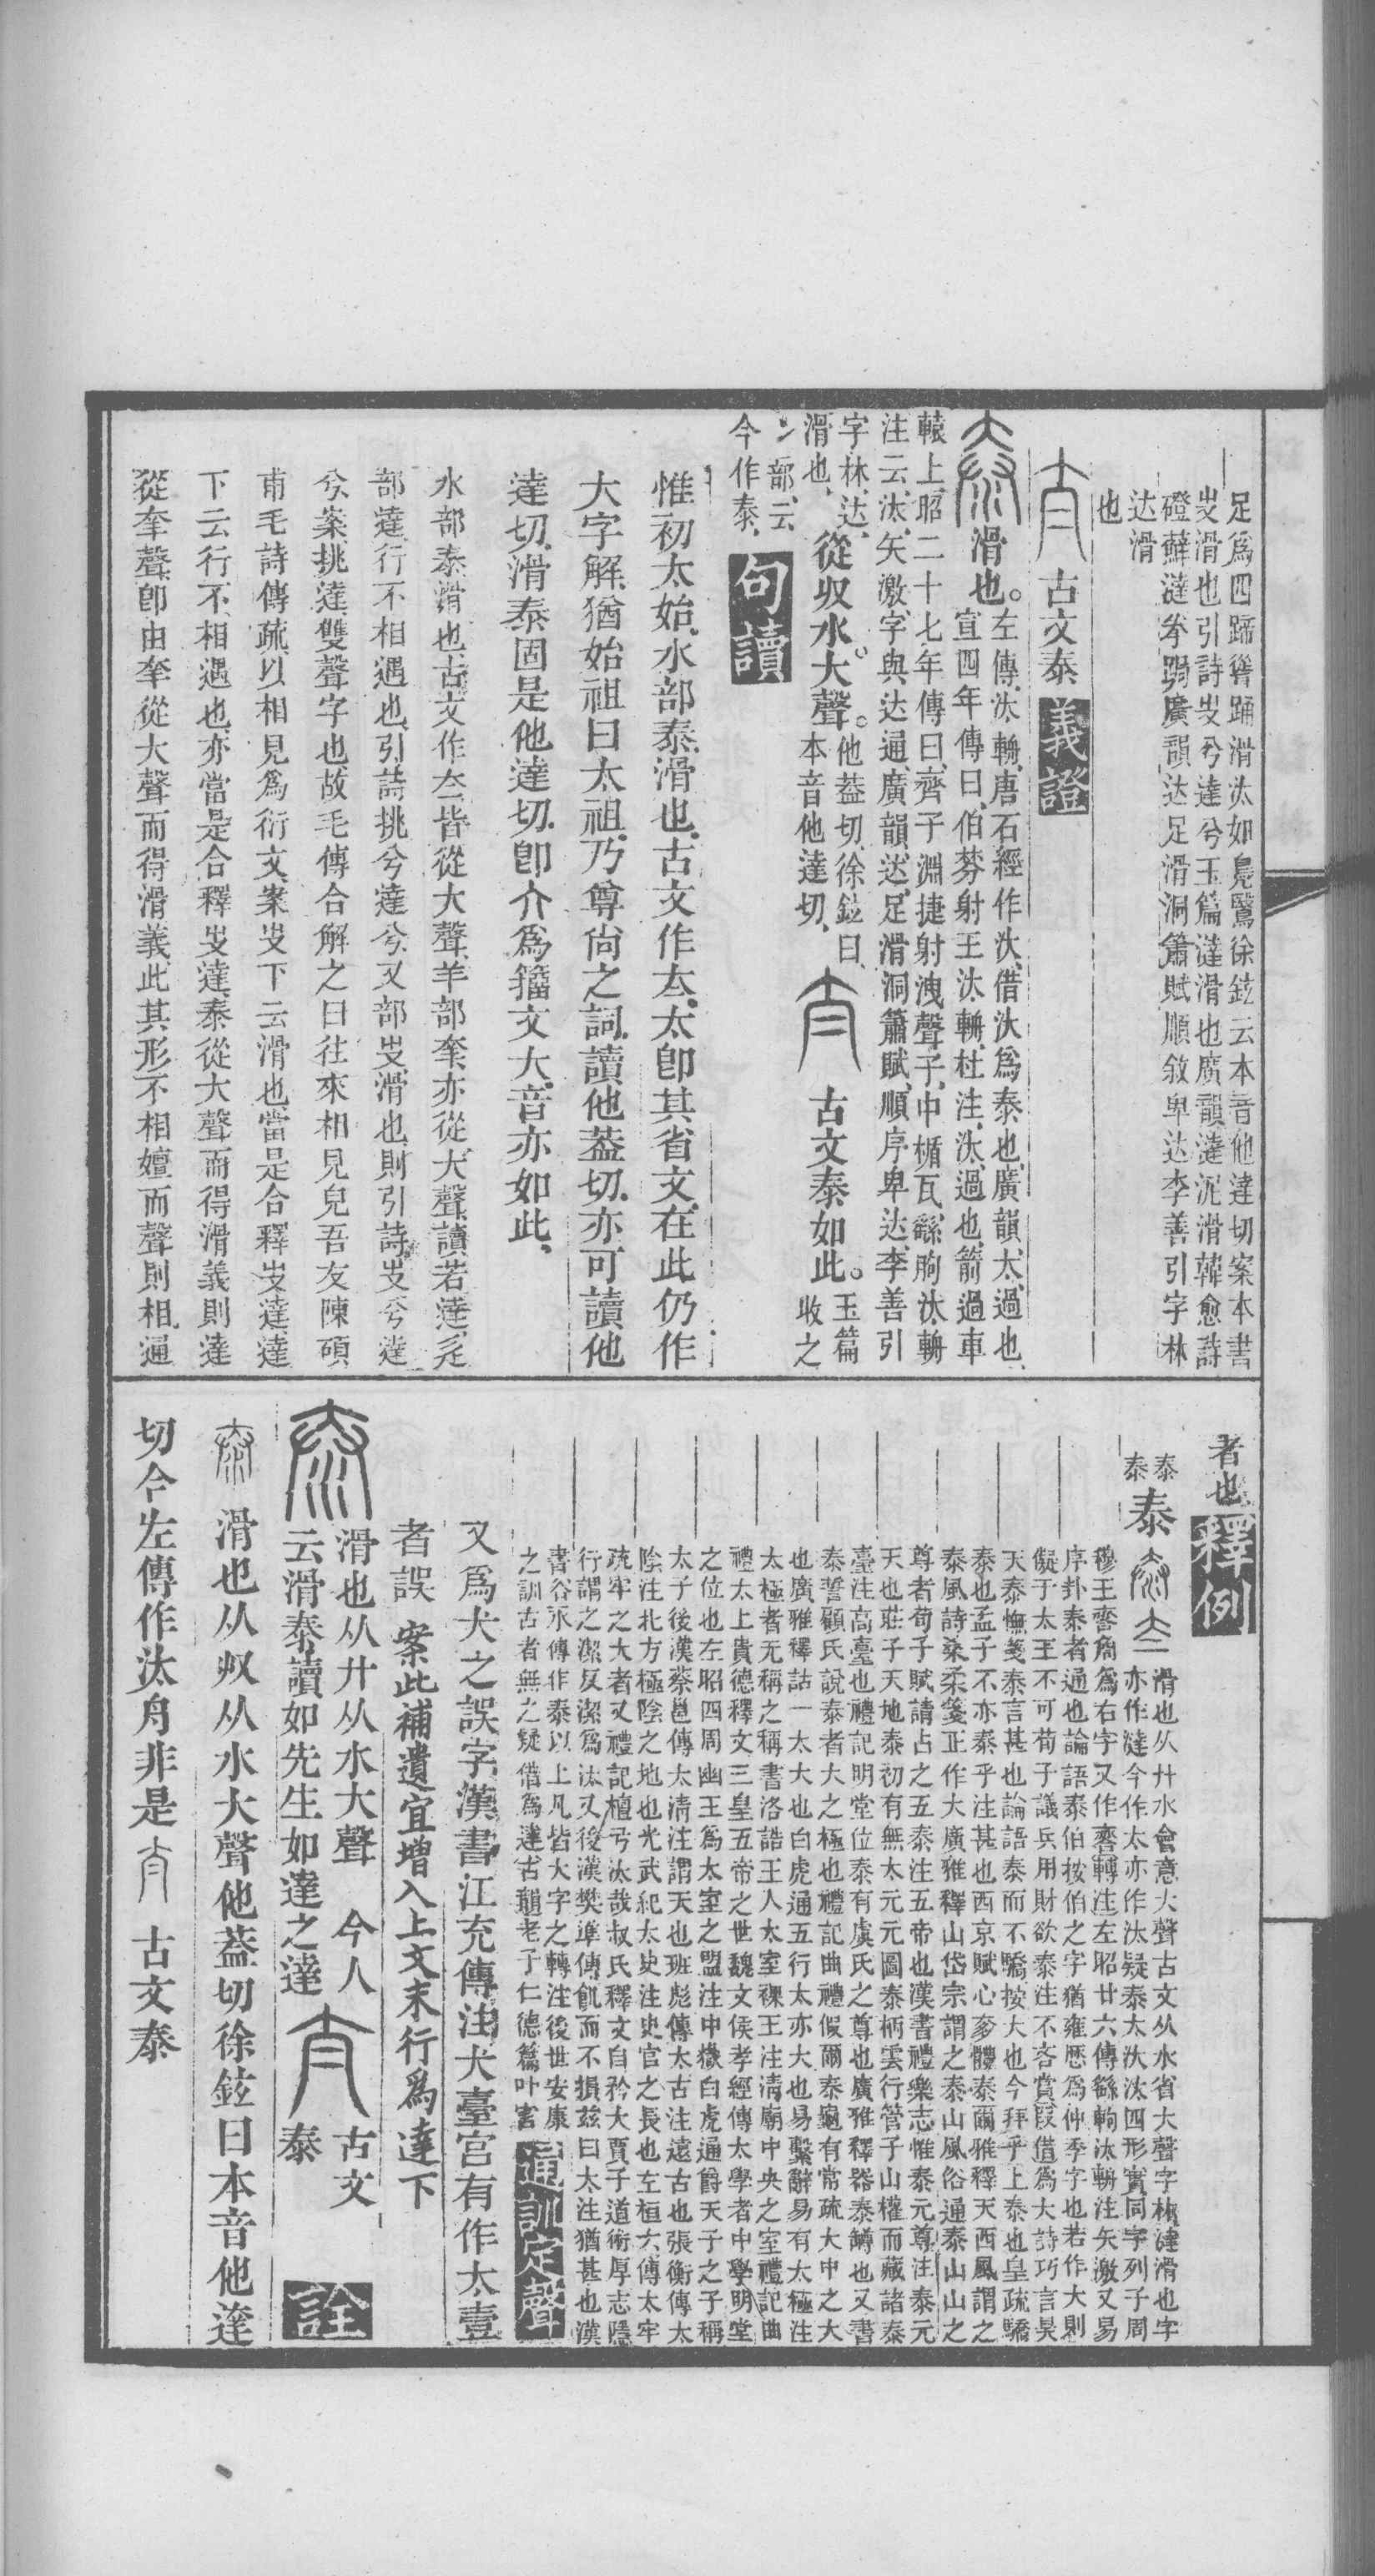 足爲四蹄聳踊滑汰如鳧鷖徐鉉云本音他達切案本書
㕞滑也引詩㕞兮達兮玉篇㳠滑也廣韻㳠泥滑韓愈詩
磴蘚㳠拳跼廣韻达足滑洞簫賦順敘卑达李善引字林
达滑
也
古文泰 義證
滑也。左傳汰輈、唐石經作汏、借汏爲泰也、廣韻、太、過也、
宣四年傳曰、伯棼射王汰輈、杜注、汰、過也、箭過車
轅上、昭二十七年傳曰、齊子淵捷射洩聲子、中楯瓦、繇朐汰輈
注云、汰、矢激、字與达通、廣韻、达、足滑、洞簫賦、順序卑达、李善引
字林、达、
滑也、
從収水、大聲。他葢切、徐鉉曰、
本音他達切、
古文泰如此。玉篇
收之
冫部、云
今作泰、 句讀
惟初太始、水部泰、滑也、古文作夳、太卽其省文、在此仍作
大字解、猶始祖曰太祖、乃尊尙之詞、讀他葢切、亦可讀他
達切、滑泰固是他達切、卽介爲籒文大、音亦如此、
水部泰、滑也、古文作夳、皆從大聲、羊部羍、亦從大聲、讀若達、辵
部達、行不相遇也、引詩挑兮達兮、又部㕞、滑也、則引詩㕞兮達
兮、案挑達、雙聲字也、故毛傳合解之曰往來相見皃、吾友陳碩
甫毛詩傳疏、以相見爲衍文、案㕞下云滑也、當是合釋㕞達、達
下云行不相遇也、亦當是合釋㕞達、泰從大聲而得滑義、則達
從羍聲、卽由羍從大聲而得滑義、此其形不相嬗而聲則相通
者也 釋例
泰
泰 泰 滑也从廾水會意大聲古文从水省大聲字林㳠滑也字
亦作㳠今作太亦作汰疑泰太汏汰四形實同字列子周
穆王𦤀𠽡爲右字又作𦤀轉注左昭廿六傳繇朐汰輈注矢激又易
序卦泰者通也論語泰伯按伯之字猶雍歷爲仲季字也若作大則
儗于太王不可荀子議兵用財欲泰注不吝賞叚借爲大詩巧言昊
天泰憮箋泰言甚也論語泰而不驕按大也今拜乎上泰也皇疏驕
泰也孟子不亦泰乎注甚也西京賦心奓體泰爾雅釋天西風謂之
泰風詩桑柔箋正作大廣雅釋山岱宗謂之泰山風俗通泰山山之
尊者荀子賦請占之五泰注五帝也漢書禮樂志惟泰元尊注泰元
天也莊子天地泰初有無太元元圖泰柄雲行管子山權而藏諸泰
臺注高臺也禮記明堂位泰有虞氏之尊也廣雅釋器泰罇也又書
泰誓顧氏說泰者大之極也禮記曲禮假爾泰龜有常疏大中之大
也廣雅釋詁一太大也白虎通五行太亦大也易繫辭易有太極注
太極者无稱之稱書洛誥王入太室祼王注淸廟中央之室禮記曲
禮太上貴德釋文三皇五帝之世魏文侯孝經傳太學者中學明堂
之位也左昭四周幽王爲太室之盟注中嶽白虎通爵天子之子稱
太子後漢蔡邕傳太淸注謂天也班彪傳太古注遠古也張衡傳太
陰注北方極陰之地也光武紀太史注史官之長也左桓六傳太牢
疏牢之大者又禮記檀弓汰哉叔氏釋文自矜大賈子道術厚志隱
行謂之潔反潔爲汰又後漢樊準傳飢而不損茲曰太注猶甚也漢
書谷永傳作泰以上凡皆大字之轉注後世安康
之訓古者無之疑借爲達古韻老子仁德篇叶害 通訓定聲
又爲犬之誤字漢書江充傳注犬臺宮有作太壹
者誤 案此補遺宜增入上文末行爲達下
滑也从廾从水大聲 今人
云滑泰讀如先生如達之達 古文
泰 詮
滑也从𠬞从水大聲他葢切徐鉉曰本音他達
切今左傳作汰舟非是 古文泰